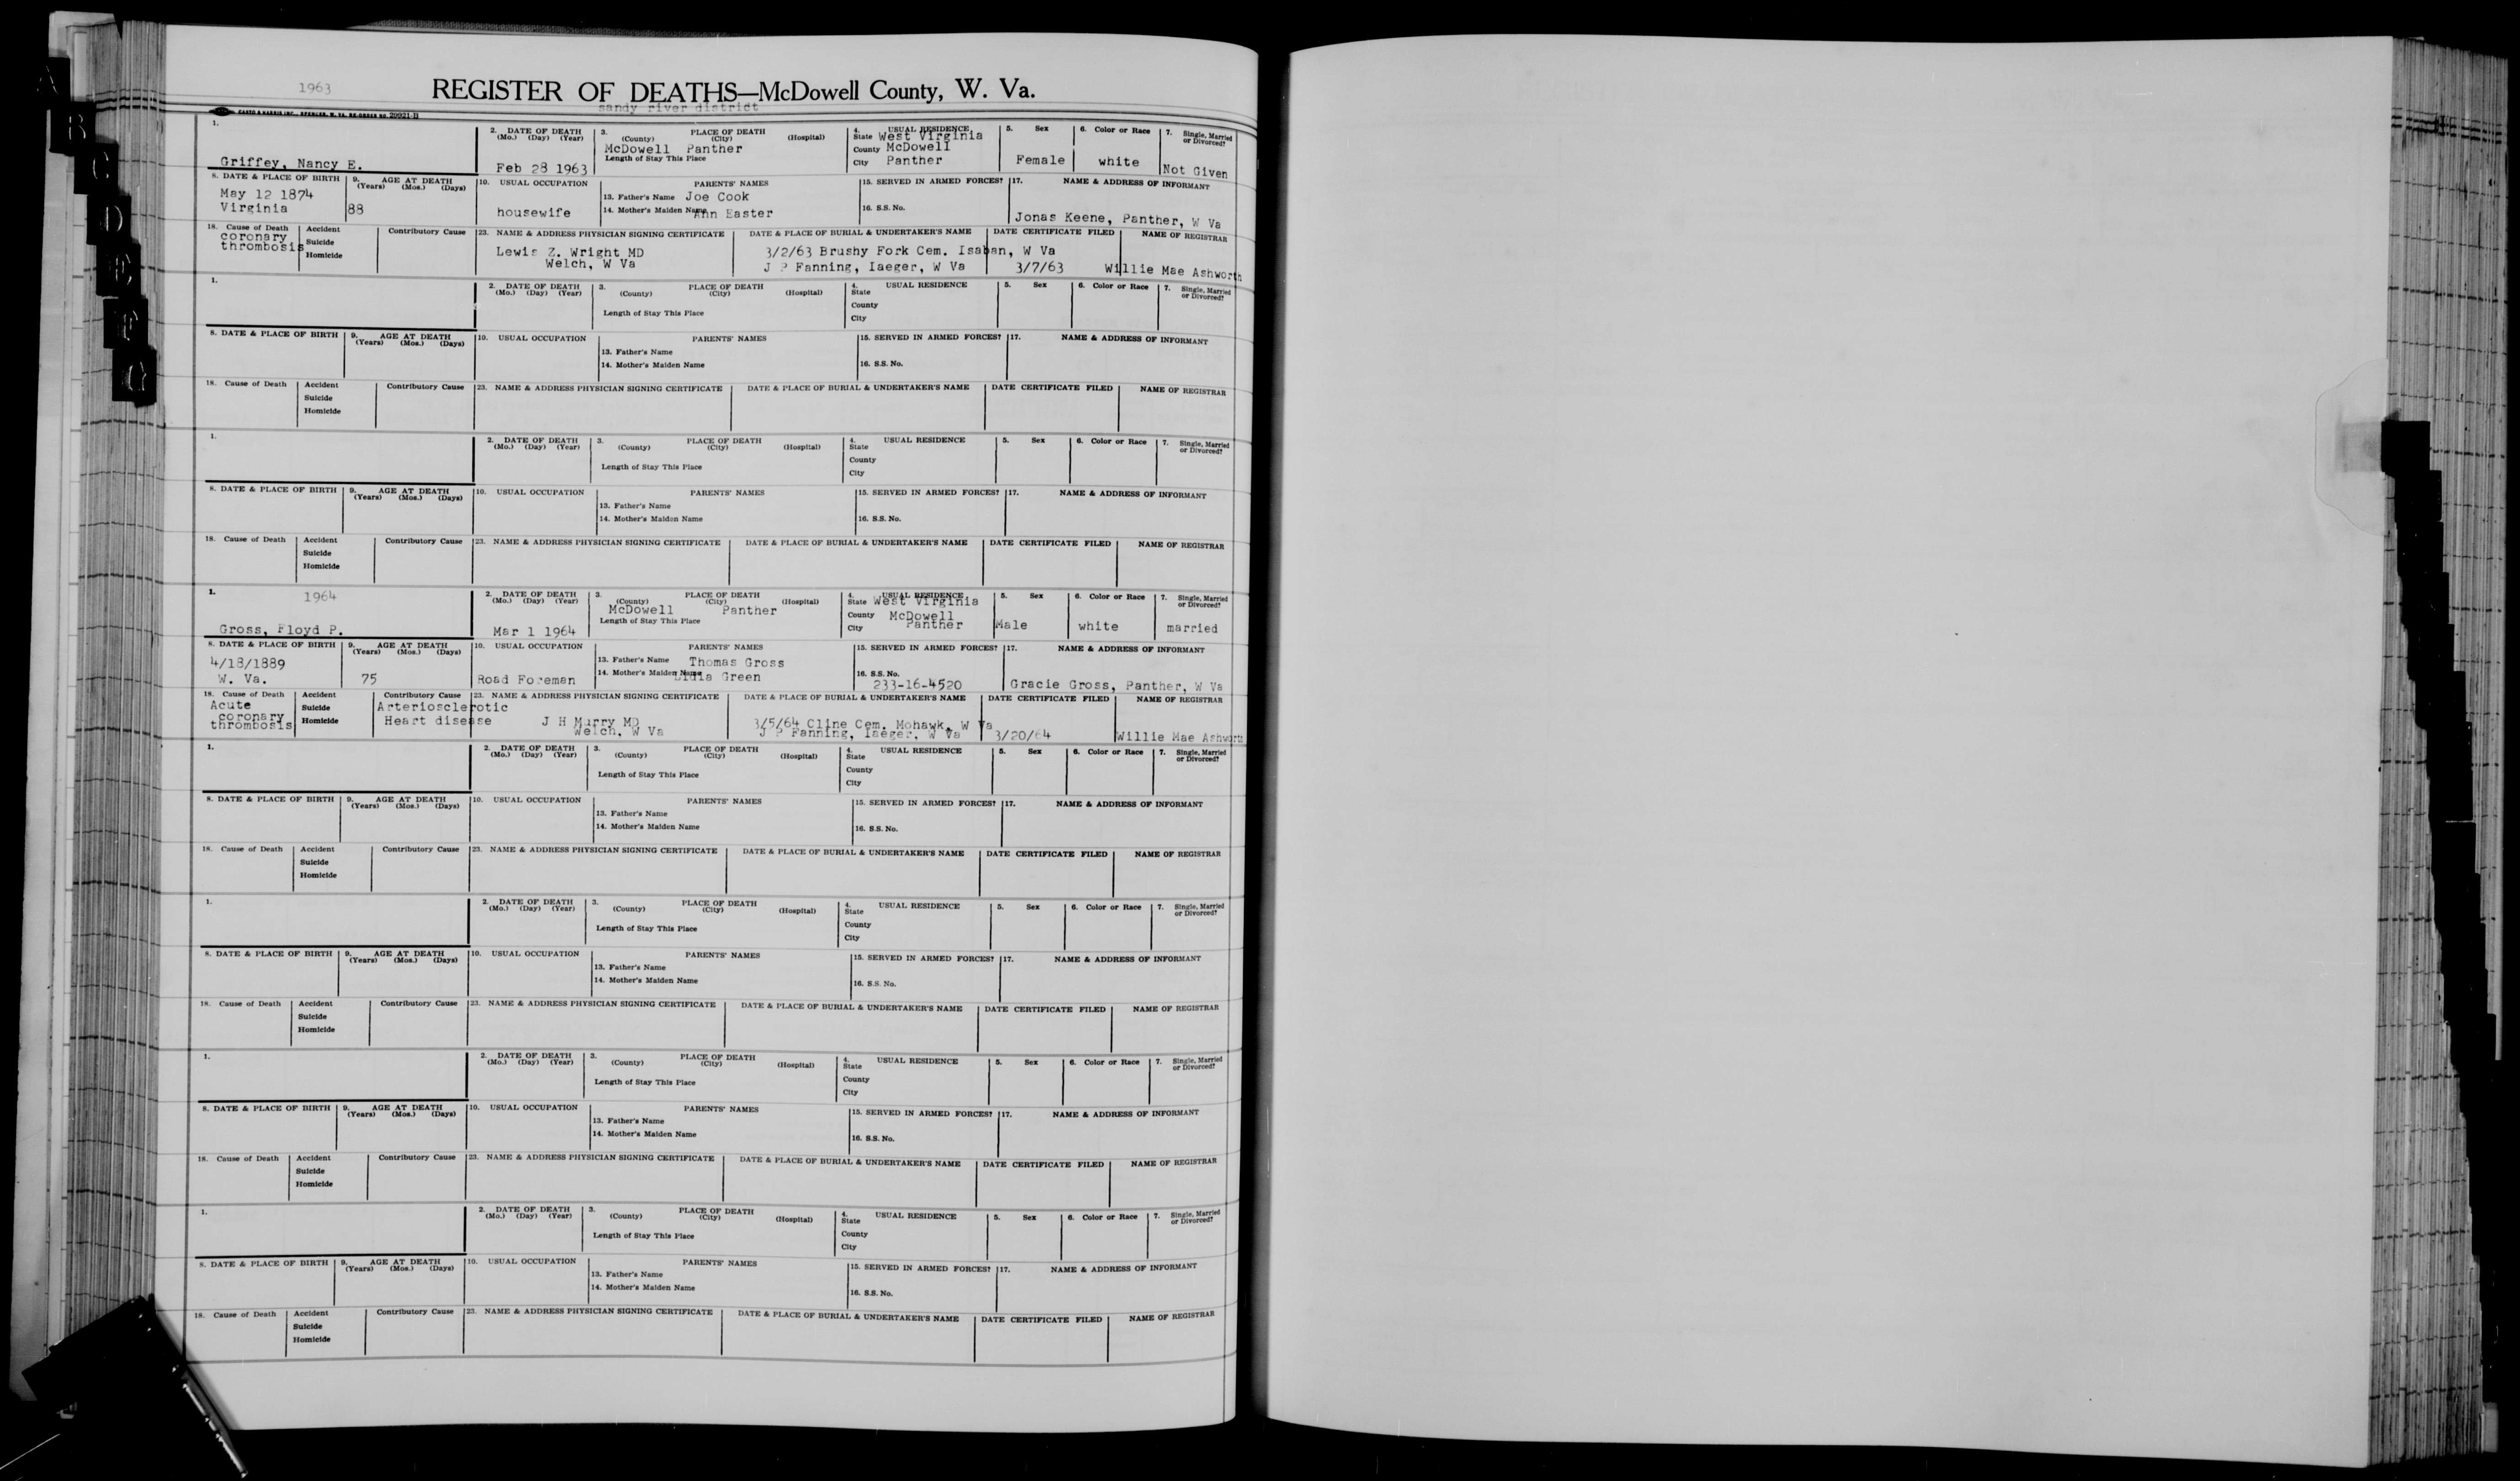 1963
REGISTER OF DEATHS—McDowell County, W. Va.
sandy river district
CASTO & HARRIS INC., SPENCER, W. VA. RE-ORDER NO. 29921-B
1. 2. DATE OF DEATH 3. PLACE OF DEATH 4. USUAL RESIDENCE 5. Sex 6. Color or Race 7. Single, Married
(Mo.) (Day) (Year) (County) (City) (Hospital) State West Virginia or Divorced?
McDowell Panther County McDowell
Griffey, Nancy E. Feb 28 1963 Length of Stay This Place City Panther Female white Not Given
8. DATE & PLACE OF BIRTH 9. AGE AT DEATH 10. USUAL OCCUPATION PARENTS' NAMES 15. SERVED IN ARMED FORCES? 17. NAME & ADDRESS OF INFORMANT
(Years) (Mos.) (Days)
May 12 1874 13. Father's Name Joe Cook
Virginia 88 housewife 14. Mother's Maiden Name Ann Easter 16. S.S. No. Jonas Keene, Panther, W Va
18. Cause of Death Accident Contributory Cause 23. NAME & ADDRESS PHYSICIAN SIGNING CERTIFICATE DATE & PLACE OF BURIAL & UNDERTAKER'S NAME DATE CERTIFICATE FILED NAME OF REGISTRAR
coronary Suicide
thrombosis Homicide Lewis Z. Wright MD 3/2/63 Brushy Fork Cem. Isaban, W Va
Welch, W Va J P Fanning, Iaeger, W Va 3/7/63 Willie Mae Ashworth
1. 2. DATE OF DEATH 3. PLACE OF DEATH 4. USUAL RESIDENCE 5. Sex 6. Color or Race 7. Single, Married
(Mo.) (Day) (Year) (County) (City) (Hospital) State or Divorced?
County
Length of Stay This Place City
8. DATE & PLACE OF BIRTH 9. AGE AT DEATH 10. USUAL OCCUPATION PARENTS' NAMES 15. SERVED IN ARMED FORCES? 17. NAME & ADDRESS OF INFORMANT
(Years) (Mos.) (Days)
13. Father's Name
14. Mother's Maiden Name 16. S.S. No.
18. Cause of Death Accident Contributory Cause 23. NAME & ADDRESS PHYSICIAN SIGNING CERTIFICATE DATE & PLACE OF BURIAL & UNDERTAKER'S NAME DATE CERTIFICATE FILED NAME OF REGISTRAR
Suicide
Homicide
1. 2. DATE OF DEATH 3. PLACE OF DEATH 4. USUAL RESIDENCE 5. Sex 6. Color or Race 7. Single, Married
(Mo.) (Day) (Year) (County) (City) (Hospital) State or Divorced?
County
Length of Stay This Place City
8. DATE & PLACE OF BIRTH 9. AGE AT DEATH 10. USUAL OCCUPATION PARENTS' NAMES 15. SERVED IN ARMED FORCES? 17. NAME & ADDRESS OF INFORMANT
(Years) (Mos.) (Days)
13. Father's Name
14. Mother's Maiden Name 16. S.S. No.
18. Cause of Death Accident Contributory Cause 23. NAME & ADDRESS PHYSICIAN SIGNING CERTIFICATE DATE & PLACE OF BURIAL & UNDERTAKER'S NAME DATE CERTIFICATE FILED NAME OF REGISTRAR
Suicide
Homicide
1. 1964 2. DATE OF DEATH 3. PLACE OF DEATH 4. USUAL RESIDENCE 5. Sex 6. Color or Race 7. Single, Married
(Mo.) (Day) (Year) (County) (City) (Hospital) State West Virginia or Divorced?
McDowell Panther County McDowell
Gross, Floyd P. Mar 1 1964 Length of Stay This Place City Panther Male white married
8. DATE & PLACE OF BIRTH 9. AGE AT DEATH 10. USUAL OCCUPATION PARENTS' NAMES 15. SERVED IN ARMED FORCES? 17. NAME & ADDRESS OF INFORMANT
(Years) (Mos.) (Days)
4/18/1889 13. Father's Name Thomas Gross
W. Va. 75 Road Foreman 14. Mother's Maiden Name Green 16. S.S. No. 233-16-4520 Gracie Gross, Panther, W Va
18. Cause of Death Accident Contributory Cause 23. NAME & ADDRESS PHYSICIAN SIGNING CERTIFICATE DATE & PLACE OF BURIAL & UNDERTAKER'S NAME DATE CERTIFICATE FILED NAME OF REGISTRAR
Acute Suicide Arteriosclerotic
coronary Homicide Heart disease J H Murry MD 3/5/64 Cline Cem. Mohawk, W Va
thrombosis Welch, W Va J P Fanning, Iaeger, W Va 3/20/64 Willie Mae Ashworth
1. 2. DATE OF DEATH 3. PLACE OF DEATH 4. USUAL RESIDENCE 5. Sex 6. Color or Race 7. Single, Married
(Mo.) (Day) (Year) (County) (City) (Hospital) State or Divorced?
County
Length of Stay This Place City
8. DATE & PLACE OF BIRTH 9. AGE AT DEATH 10. USUAL OCCUPATION PARENTS' NAMES 15. SERVED IN ARMED FORCES? 17. NAME & ADDRESS OF INFORMANT
(Years) (Mos.) (Days)
13. Father's Name
14. Mother's Maiden Name 16. S.S. No.
18. Cause of Death Accident Contributory Cause 23. NAME & ADDRESS PHYSICIAN SIGNING CERTIFICATE DATE & PLACE OF BURIAL & UNDERTAKER'S NAME DATE CERTIFICATE FILED NAME OF REGISTRAR
Suicide
Homicide
1. 2. DATE OF DEATH 3. PLACE OF DEATH 4. USUAL RESIDENCE 5. Sex 6. Color or Race 7. Single, Married
(Mo.) (Day) (Year) (County) (City) (Hospital) State or Divorced?
County
Length of Stay This Place City
8. DATE & PLACE OF BIRTH 9. AGE AT DEATH 10. USUAL OCCUPATION PARENTS' NAMES 15. SERVED IN ARMED FORCES? 17. NAME & ADDRESS OF INFORMANT
(Years) (Mos.) (Days)
13. Father's Name
14. Mother's Maiden Name 16. S.S. No.
18. Cause of Death Accident Contributory Cause 23. NAME & ADDRESS PHYSICIAN SIGNING CERTIFICATE DATE & PLACE OF BURIAL & UNDERTAKER'S NAME DATE CERTIFICATE FILED NAME OF REGISTRAR
Suicide
Homicide
1. 2. DATE OF DEATH 3. PLACE OF DEATH 4. USUAL RESIDENCE 5. Sex 6. Color or Race 7. Single, Married
(Mo.) (Day) (Year) (County) (City) (Hospital) State or Divorced?
County
Length of Stay This Place City
8. DATE & PLACE OF BIRTH 9. AGE AT DEATH 10. USUAL OCCUPATION PARENTS' NAMES 15. SERVED IN ARMED FORCES? 17. NAME & ADDRESS OF INFORMANT
(Years) (Mos.) (Days)
13. Father's Name
14. Mother's Maiden Name 16. S.S. No.
18. Cause of Death Accident Contributory Cause 23. NAME & ADDRESS PHYSICIAN SIGNING CERTIFICATE DATE & PLACE OF BURIAL & UNDERTAKER'S NAME DATE CERTIFICATE FILED NAME OF REGISTRAR
Suicide
Homicide
1. 2. DATE OF DEATH 3. PLACE OF DEATH 4. USUAL RESIDENCE 5. Sex 6. Color or Race 7. Single, Married
(Mo.) (Day) (Year) (County) (City) (Hospital) State or Divorced?
County
Length of Stay This Place City
8. DATE & PLACE OF BIRTH 9. AGE AT DEATH 10. USUAL OCCUPATION PARENTS' NAMES 15. SERVED IN ARMED FORCES? 17. NAME & ADDRESS OF INFORMANT
(Years) (Mos.) (Days)
13. Father's Name
14. Mother's Maiden Name 16. S.S. No.
18. Cause of Death Accident Contributory Cause 23. NAME & ADDRESS PHYSICIAN SIGNING CERTIFICATE DATE & PLACE OF BURIAL & UNDERTAKER'S NAME DATE CERTIFICATE FILED NAME OF REGISTRAR
Suicide
Homicide
B
C
D
E
F
G